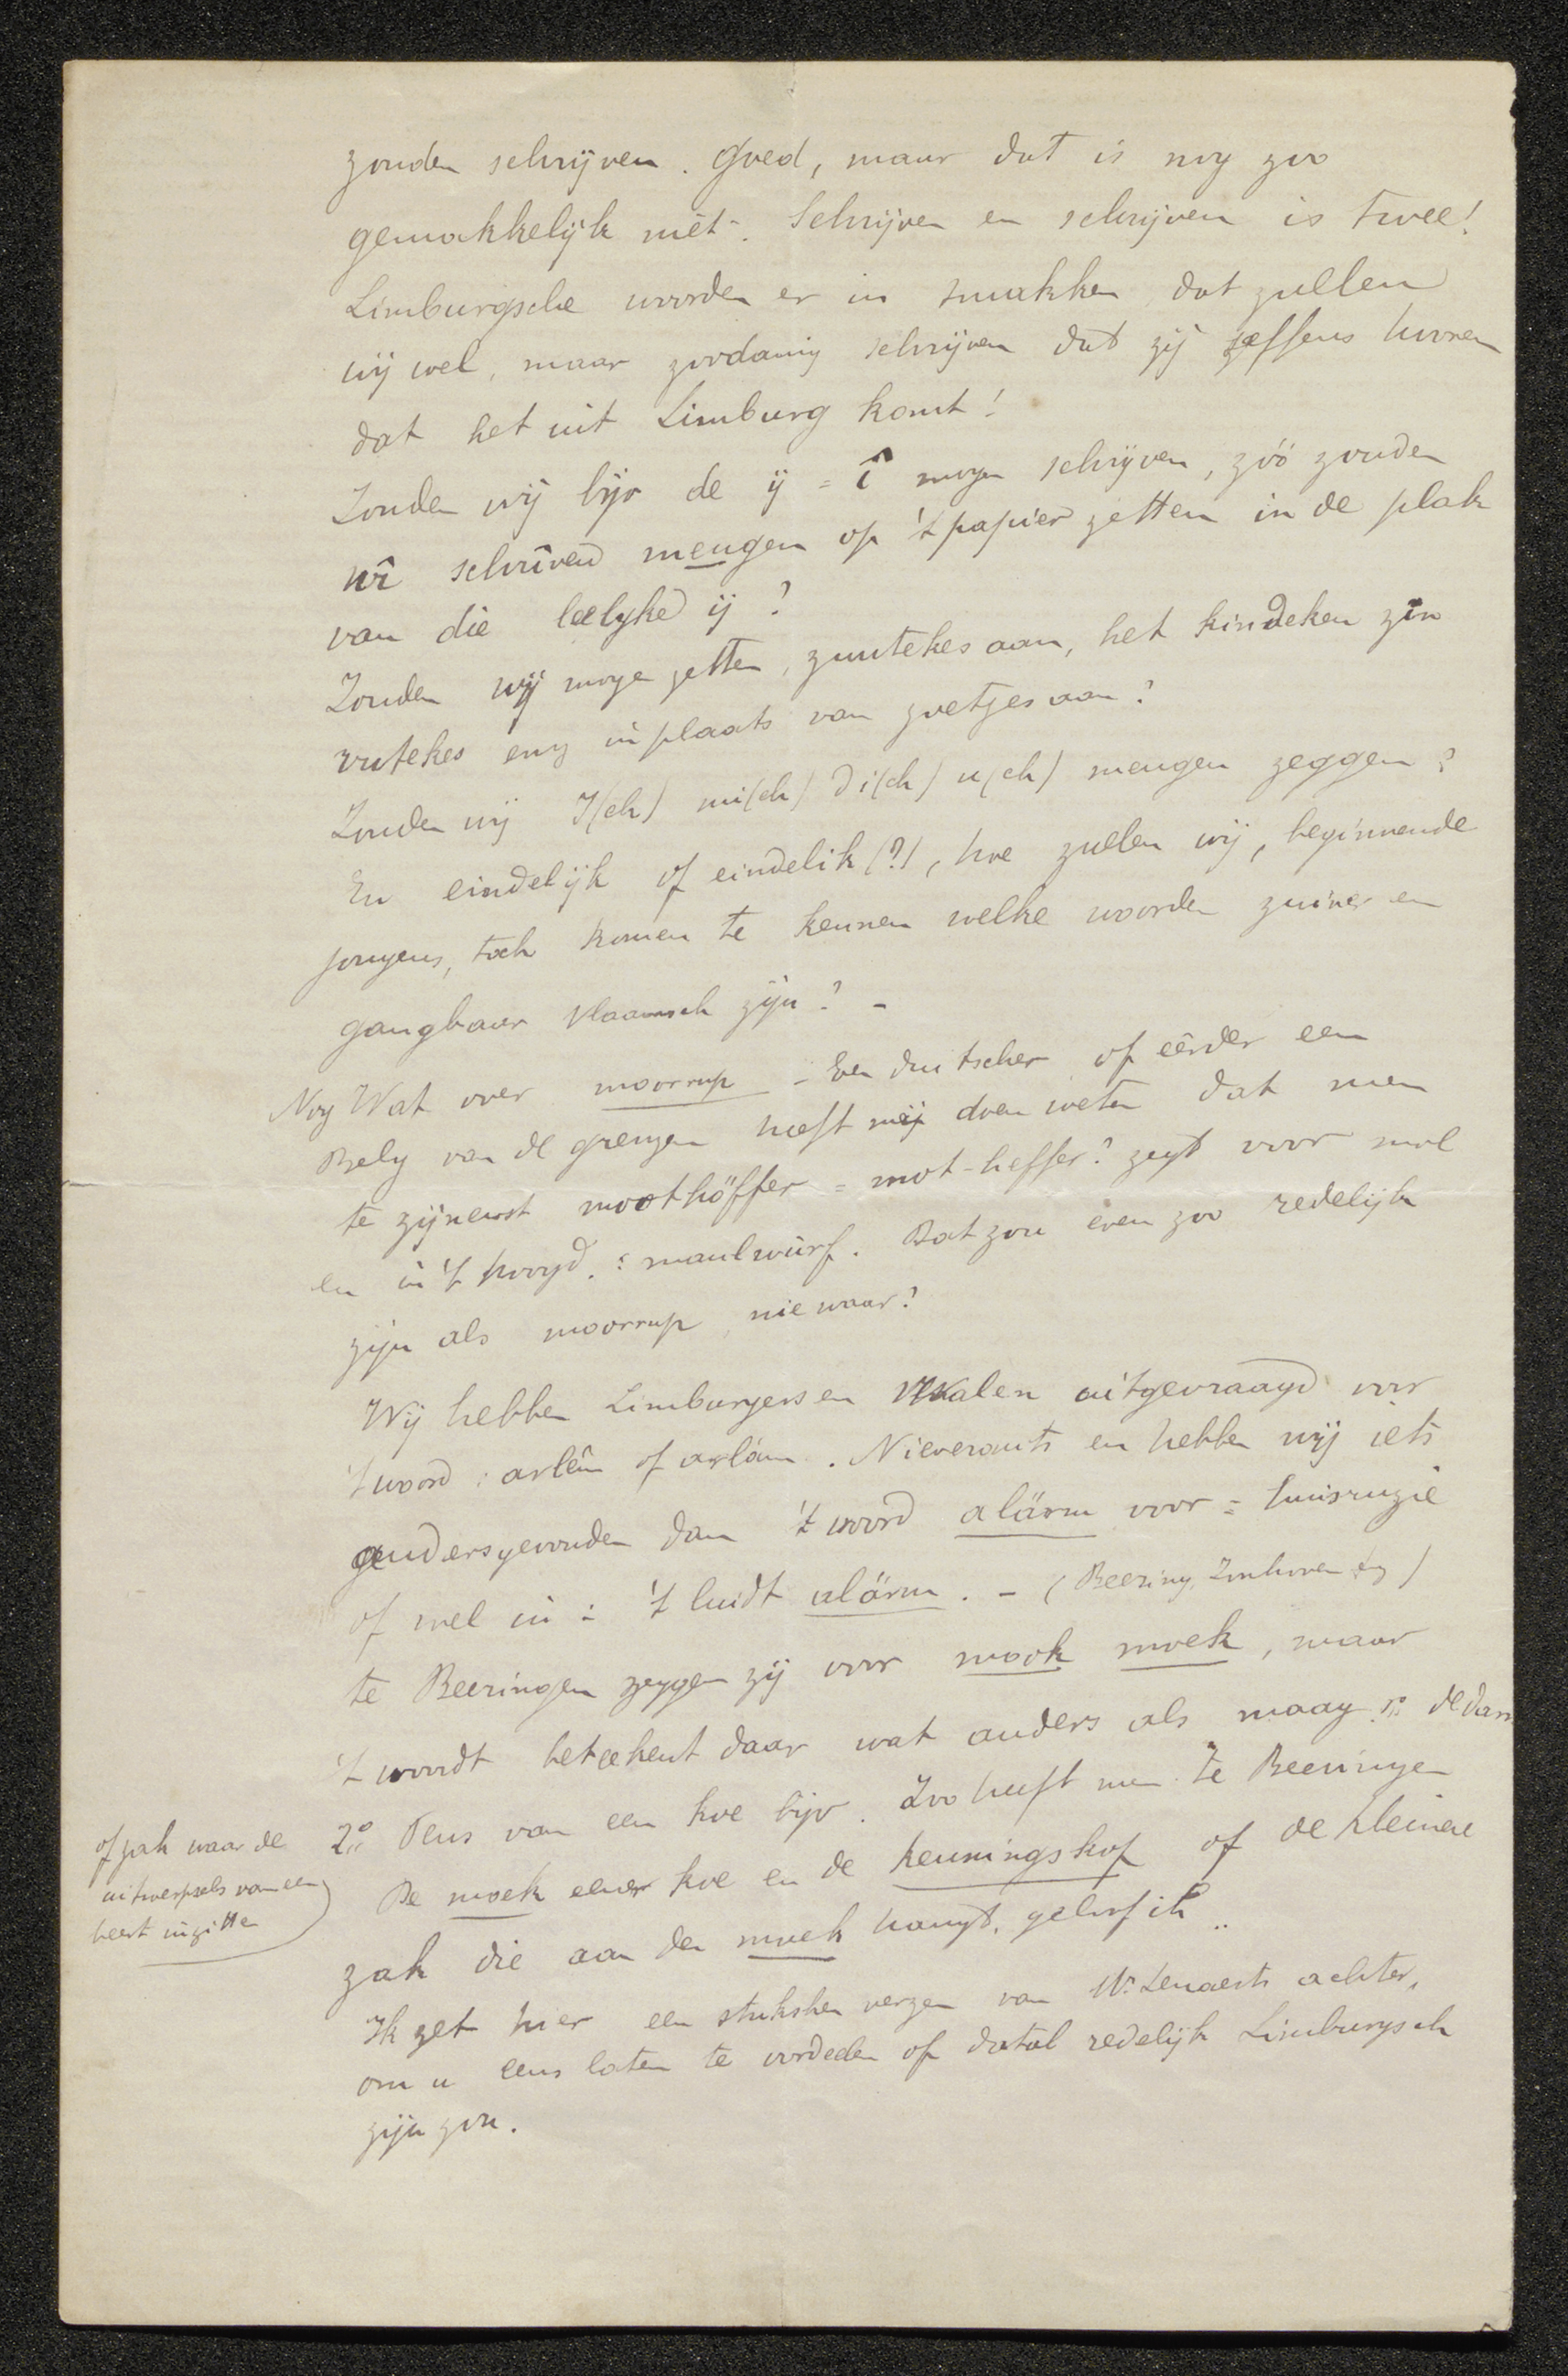 zouden schrijven. Goed, maar dat is nog zoo
gemakkelijk niet. Schrijven en schrijven is twee!
Limburgsche woorden er in smakken dat zullen
wij wel, maar zoodanig schrijven dat zij seffens hooren
dat het uit Limburg komt!
Zouden wij bijv de ij = î mogen schrijven, zóó zouden
wî schrîven meugen op 't papier zetten in de plak
van die leelyke ij?
Zouden wij mogen zetten, zuutekes aan, het kindeken zîn
vutekes enz in plaats van zoetjes aan?
Zouden wij I(ch) mi(ch) di(ch) u(ch) meugen zeggen?
En eindelijk of eindelik (?), hoe zullen wij, beginnende
jongens, toch komen te kennen welke woorden zuiver en
gangbaar vlaamsch zijn? -
Nog Wat over moorrup - Een duitscher of eerder een
Belg van de grenzen heeft mij doen weten dat men
te zijnent moothöffer = mot-heffer? zegt voor mol
en in 't hoogd.: maulwürf. Dat zou even zoo redelijk
zijn als moorrup niewaar?
Wij hebben Limburgers en Walen uitgevraagd voor
't woord: arlêm of arlám. Nieverants en hebben wij iets
anders gevonden dan 't woord alärm voor = huisruzie
of wel in: 't luidt alärm. - (Beering, Zonhoven enz)
te Beeringen zeggen zij voor mook moek, maar
't woordt beteekent daar wat anders als maag 1º: de darm
2º: Pens van een koe bijv. Zoo heeft men te Beeringen
of zak waar de
uitwerpsels van een
beest in zitten
De moek eener koe en de keuningskop of de kleinere
zak die aan den moek hangt, geloof ik..
Ik zet hier een stuksken verzen van Mr Lenaerts achter,
om u eens laten te oordeelen of dat al redelijk Limburgsch
zijn zou.